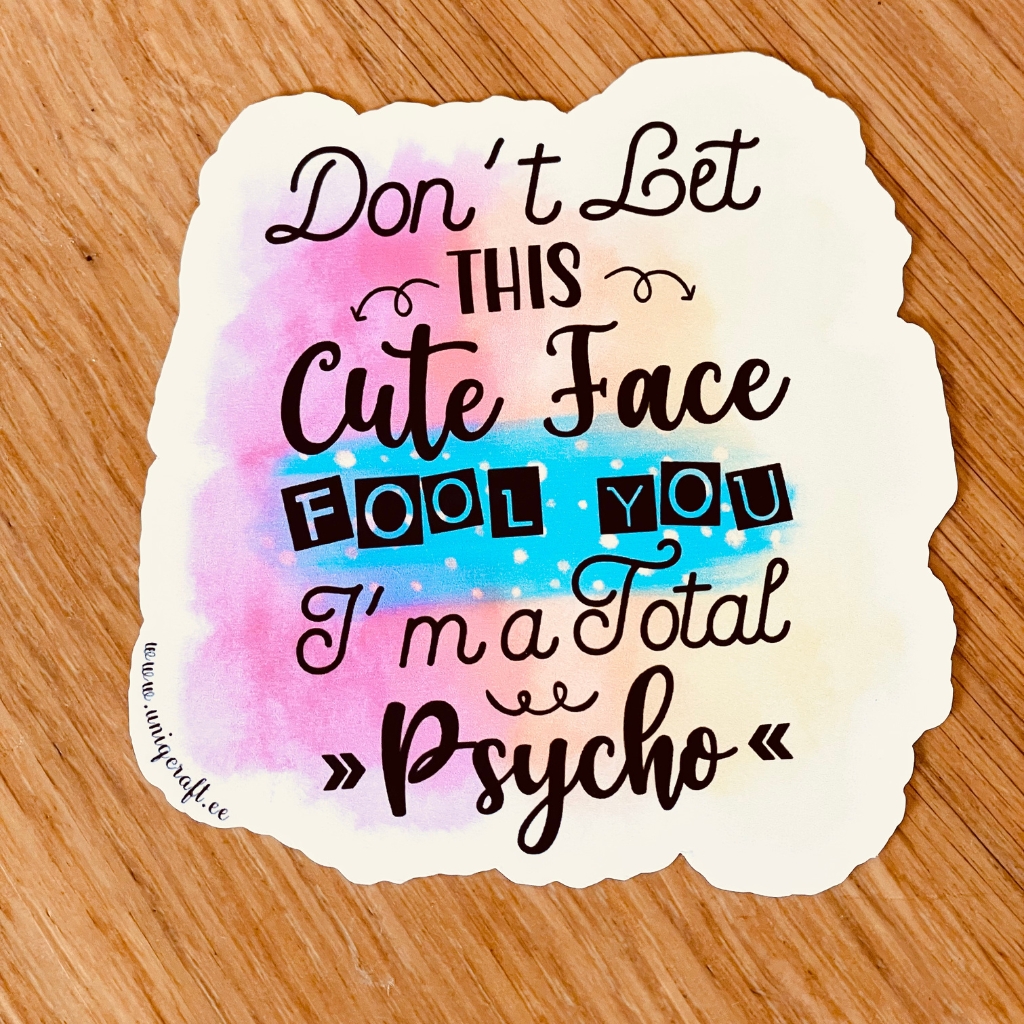 Don't Let
THIS
Cute Face
FOOL YOU
I'm a Total
»Psycho«
www.uniqcraft.ee